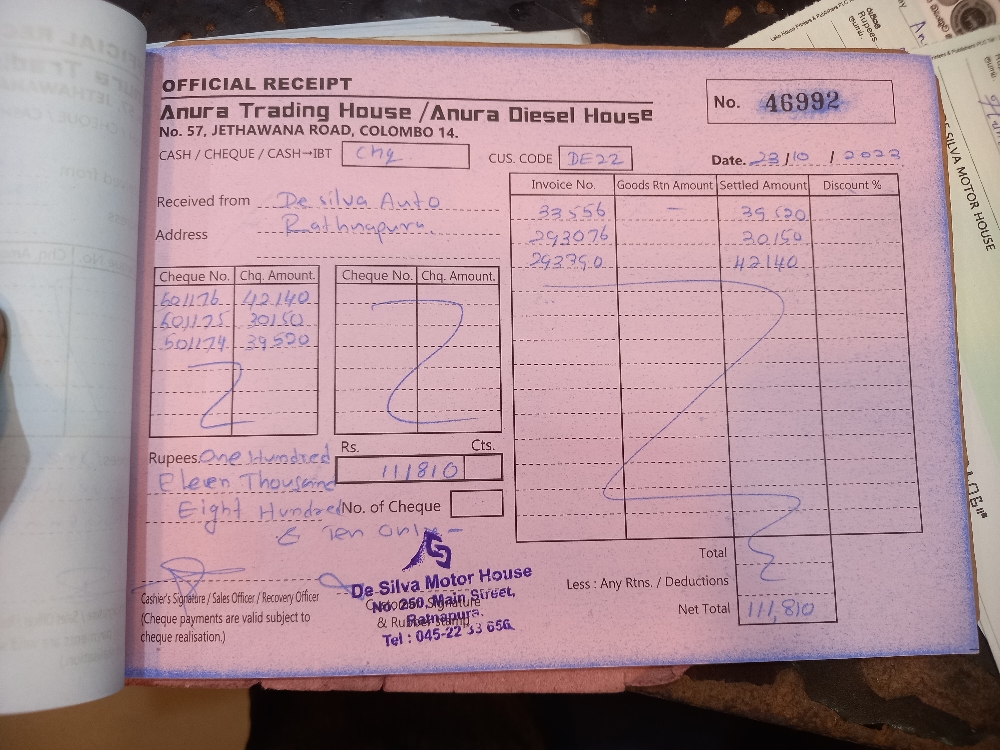 OFFICIAL RECEIPT
Anura Trading House / Anura Diesel House
No. 57, JETHAWANA ROAD, COLOMBO 14.
No. 46992
CASH / CHEQUE / CASH→IBT Chq
CUS. CODE DE22
Date. 23/10/2023
Received from De silva Auto
Address Rathnapura.
Invoice No. Goods Rtn Amount Settled Amount Discount %
33556 – 39520
293076 30150
293790 42140
Cheque No. Chq. Amount. Cheque No. Chq. Amount.
601176 42140
601175 30150
601174 39520
Rupees. One Hundred
Eleven Thousand
Eight Hundred
& Ten Only –
Rs. Cts.
111810
No. of Cheque
Total
Less : Any Rtns. / Deductions
Net Total 111,810
Cashier's Signature / Sales Officer / Recovery Officer
(Cheque payments are valid subject to
cheque realisation.)
Signature
& Rubber
De Silva Motor House
No. 250, Main Street,
Ratnapura.
Tel : 045-22 33 656.
DE SILVA MOTOR HOUSE
Rupees